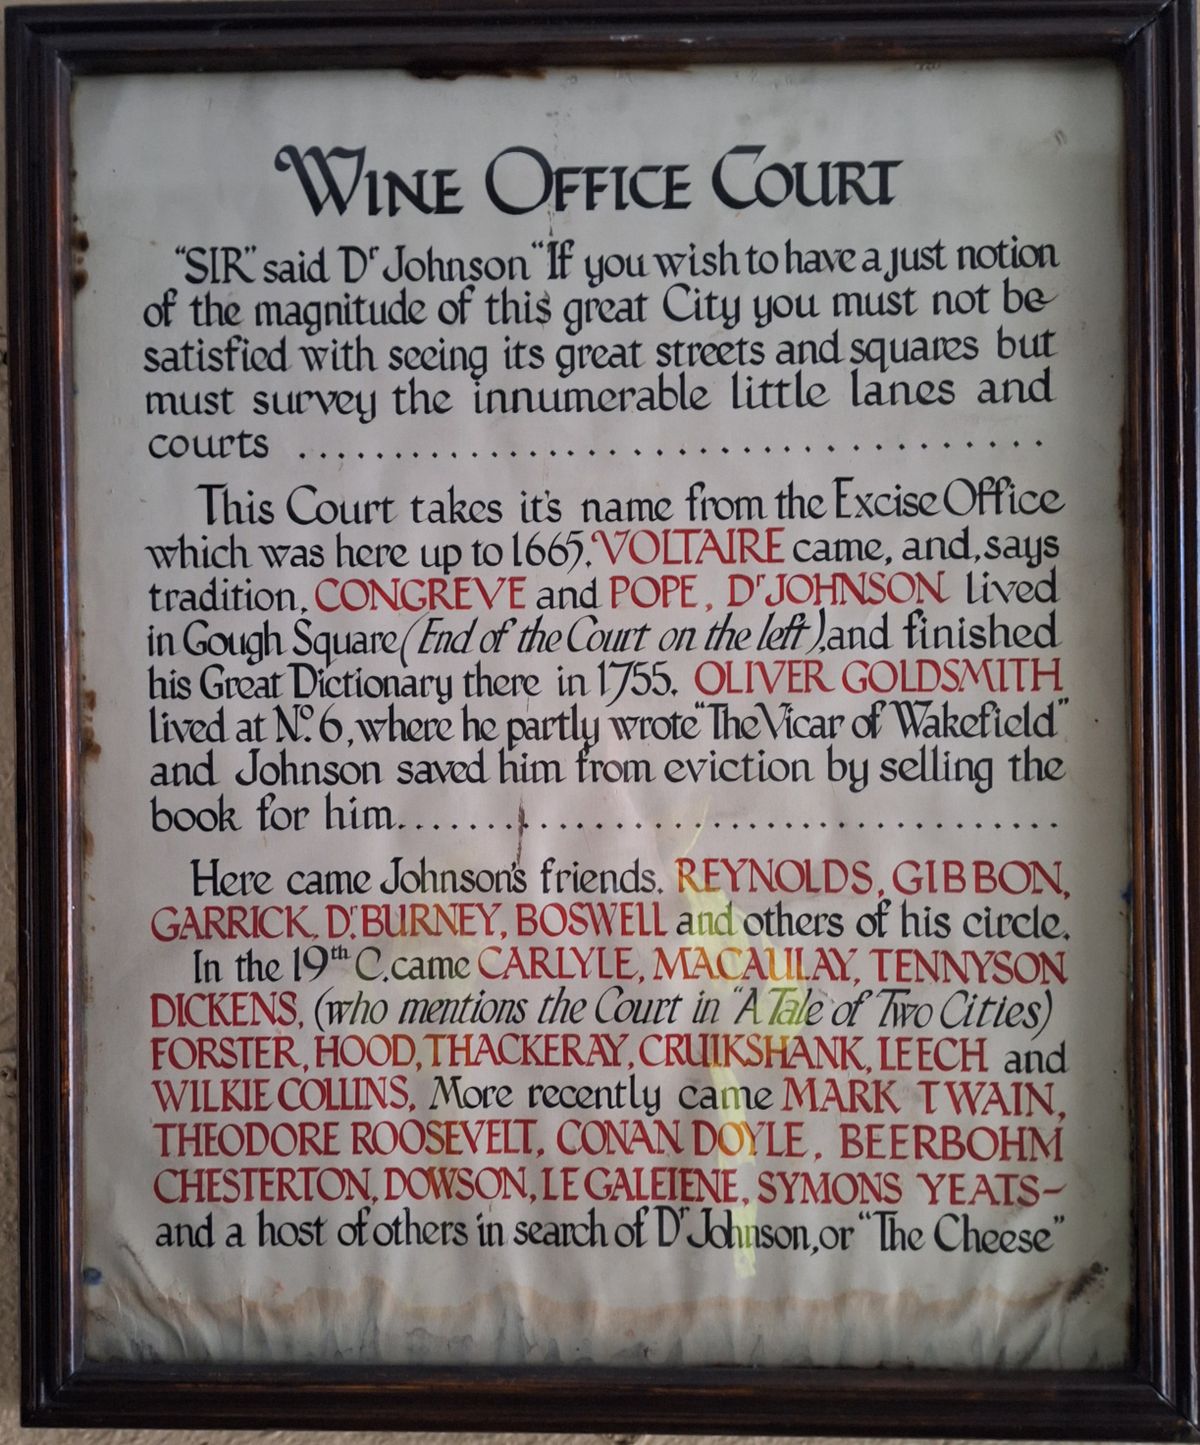 WINE OFFICE COURT
"SIR" said Dr Johnson "If you wish to have a just notion
of the magnitude of this great City you must not be
satisfied with seeing its great streets and squares but
must survey the innumerable little lanes and
courts ..............................
This Court takes it's name from the Excise Office
which was here up to 1665. VOLTAIRE came, and, says
tradition, CONGREVE and POPE, Dr JOHNSON lived
in Gough Square (End of the Court on the left), and finished
his Great Dictionary there in 1755. OLIVER GOLDSMITH
lived at No. 6, where he partly wrote "The Vicar of Wakefield"
and Johnson saved him from eviction by selling the
book for him..............................
Here came Johnson's friends. REYNOLDS, GIBBON,
GARRICK, Dr. BURNEY, BOSWELL and others of his circle.
In the 19th C. came CARLYLE, MACAULAY, TENNYSON
DICKENS, (who mentions the Court in "A Tale of Two Cities)
FORSTER, HOOD, THACKERAY, CRUIKSHANK, LEECH and
WILKIE COLLINS. More recently came MARK TWAIN,
THEODORE ROOSEVELT, CONAN DOYLE, BEERBOHM
CHESTERTON, DOWSON, LE GALEIENE, SYMONS YEATS-
and a host of others in search of Dr Johnson, or "The Cheese"